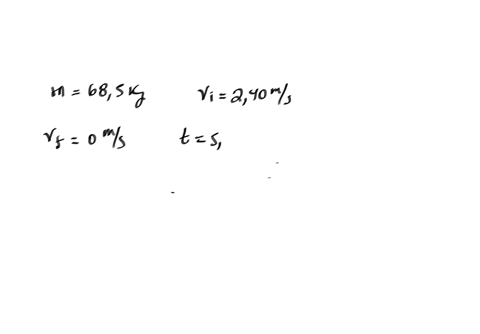 m = 68,5 Kg vi = 2,40 m/s
vf = 0 m/s t = 5,